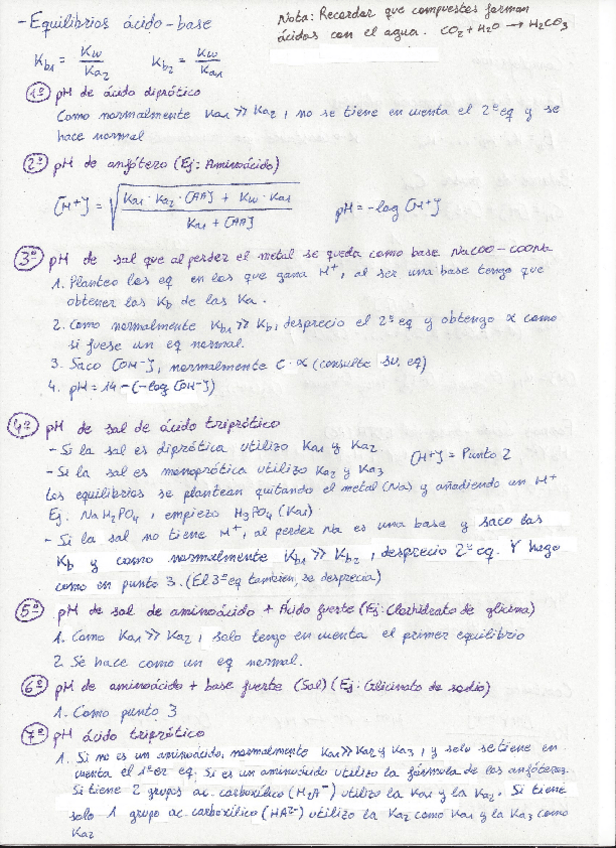 - Equilibrios ácido-base
Nota: Recordar que compuestos forman
ácidos con el agua. CO₂+H₂O → H₂CO₃
Kb₁ = Kw/Ka₂    Kb₂ = Kw/Ka₁
1º pH de ácido diprótico
Como normalmente Ka₁ >> Ka₂, no se tiene en cuenta el 2º eq y se
hace normal
2º pH de anfótero (Ej: Aminoácido)
[H⁺] = √((Ka₁·Ka₂·[AA] + Kw·Ka₁)/(Ka₁ + [AA]))    pH = -log [H⁺]
3º pH de sal que al perder el metal se queda como base NaCOO-COONa
1. Planteo los eq en los que gana H⁺, al ser una base tengo que
obtener las Kb de las Ka.
2. Como normalmente Kb₁ >> Kb₂ desprecio el 2º eq y obtengo α como
si fuese un eq normal.
3. Saco [OH⁻], normalmente C·α (consulte su eq)
4. pH = 14 - (-log [OH⁻])
4º pH de sal de ácido triprótico
- Si la sal es diprótica utilizo Ka₁ y Ka₂
[H⁺] = Punto 2
- Si la sal es monoprótica utilizo Ka₂ y Ka₃
Los equilibrios se plantean quitando el metal (Na) y añadiendo un H⁺
Ej. NaH₂PO₄, empiezo H₃PO₄ (Ka₁)
- Si la sal no tiene H⁺, al perder Na es una base y saco las
Kb y como normalmente Kb₁ >> Kb₂, desprecio 2º eq. Y hago
como en punto 3. (El 3º eq tambien, se desprecia)
5º pH de sal de aminoácido + Ácido fuerte (Ej: Clorhidrato de glicina)
1. Como Ka₁ >> Ka₂, solo tengo en cuenta el primer equilibrio
2. Se hace como un eq normal.
6º pH de aminoácido + base fuerte (Sal) (Ej: Glicinato de sodio)
1. Como punto 3
7º pH ácido triprótico
1. Si no es un aminoácido, normalmente Ka₁ >> Ka₂ y Ka₃, y solo se tiene en
cuenta el 1er eq. Si es un aminoácido utilizo la fórmula de los anfóteros.
Si tiene 2 grupos ac. carboxílico (H₂A⁻) utilizo la Ka₁ y la Ka₂. Si tiene
solo 1 grupo ac. carboxílico (HA²⁻) utilizo la Ka₂ como Ka₁ y la Ka₃ como
Ka₂